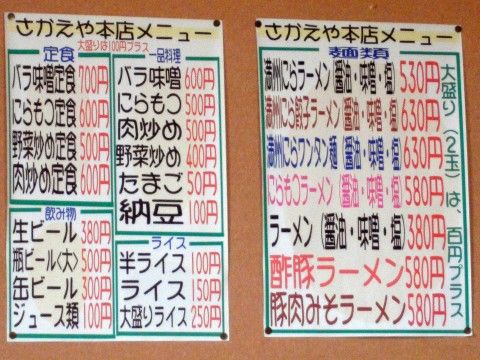 さかえや本店メニュー
大盛りは100円プラス
定食
バラ味噌定食 700円
にらもつ定食 600円
味噌炒め定食 500円
野菜炒め定食 500円
肉炒め定食 600円
一品料理
バラ味噌 600円
にらもつ 500円
肉炒め 500円
野菜炒め 400円
たまご 50円
納豆 100円
飲み物
生ビール 380円
瓶ビール<大> 500円
缶ビール 300円
ジュース類 100円
ライス
半ライス 100円
ライス 150円
大盛りライス 250円
さかえや本店メニュー
麺類
満州にらラーメン(醤油・味噌・塩) 530円
満州にら餃子ラーメン(醤油・味噌・塩) 630円
満州にらワンタン麺(醤油・味噌・塩) 630円
にらもつラーメン(醤油・味噌・塩) 580円
ラーメン(醤油・味噌・塩) 380円
酢豚ラーメン 580円
豚肉みそラーメン 580円
大盛り(2玉)は、百円プラス